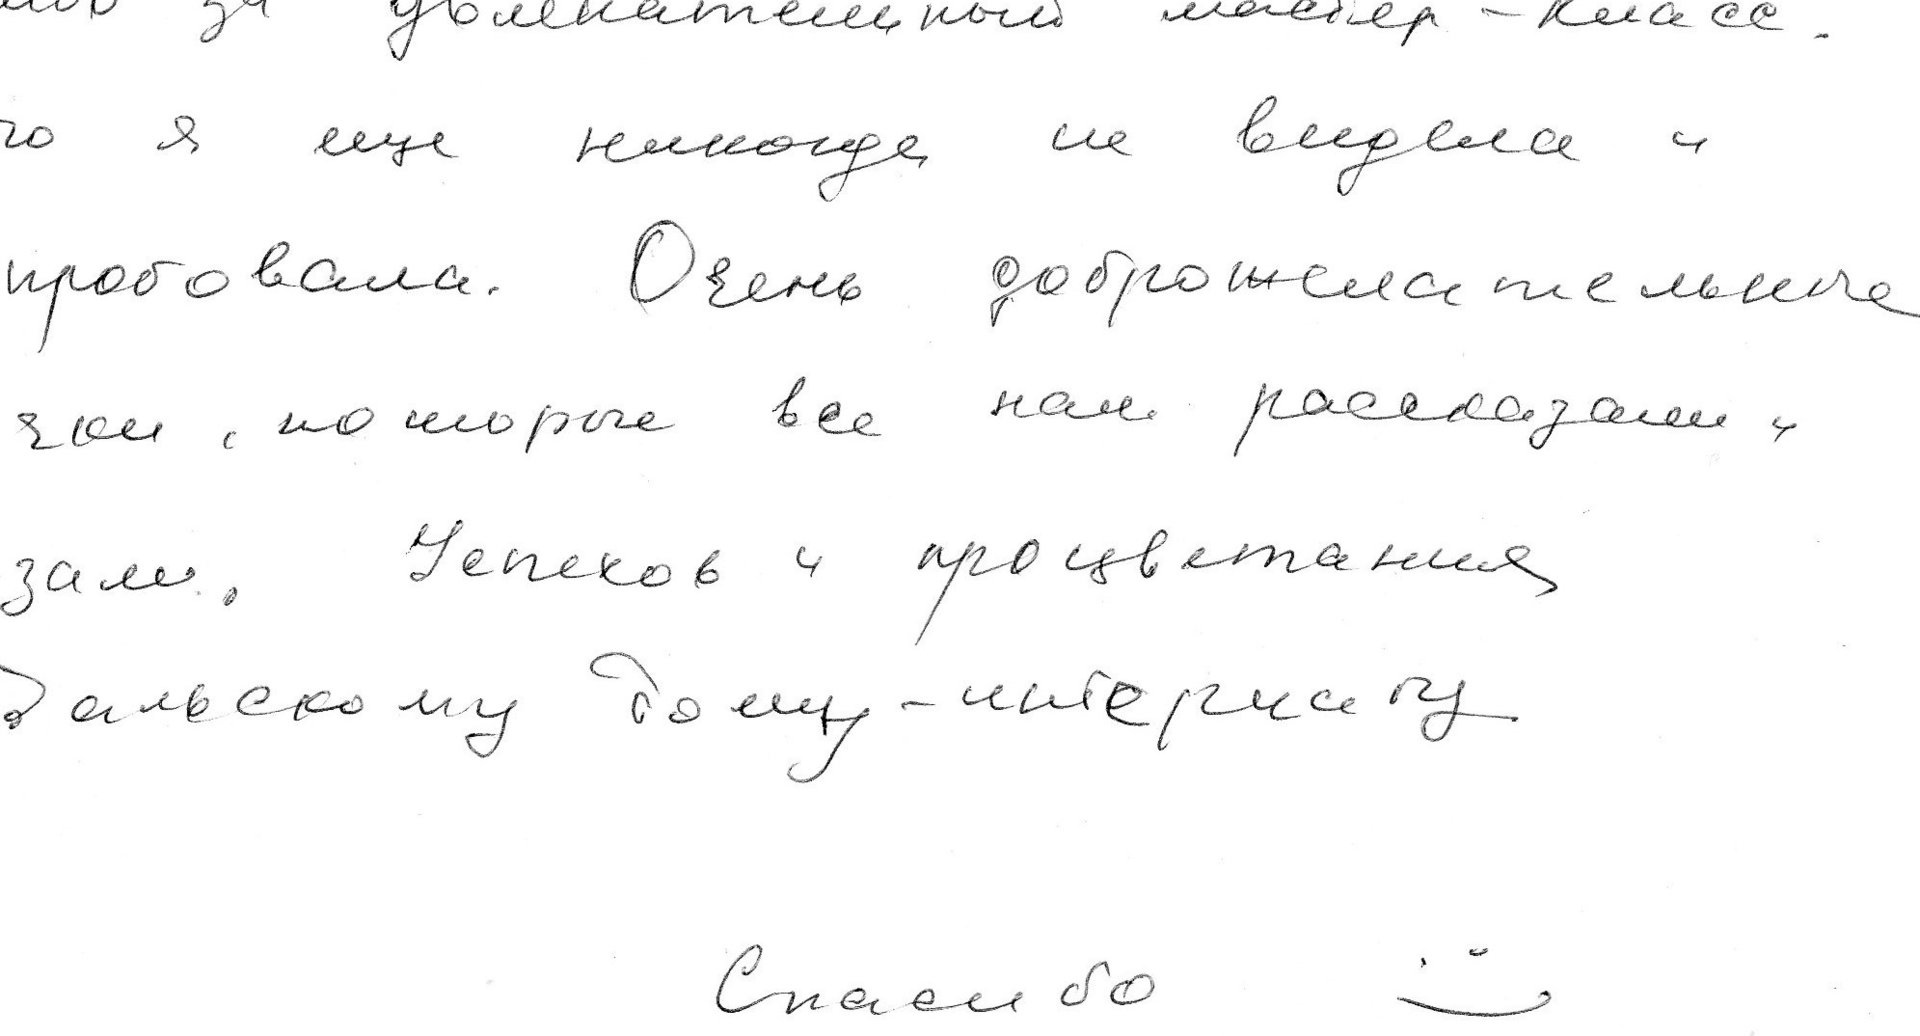 за увлекательный мастер-класс.
го я еще никогда не видела и
пробовала. Очень доброжелательные
которые все нам рассказали и
зали. Успехов и процветания
дальскому Дому-интернату
Спасибо